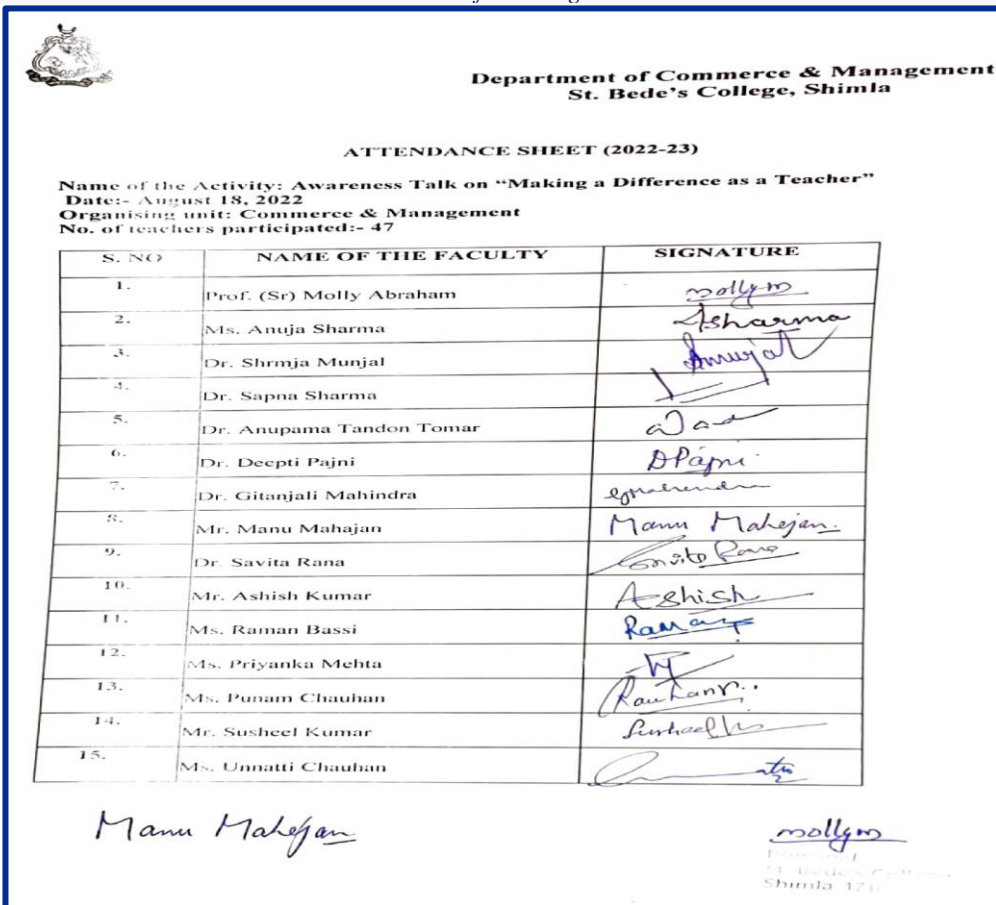 Department of Commerce & Management
St. Bede's College, Shimla
ATTENDANCE SHEET (2022-23)
Name of the Activity: Awareness Talk on “Making a Difference as a Teacher”
Date:- August 18, 2022
Organising unit: Commerce & Management
No. of teachers participated:- 47
S. NO NAME OF THE FACULTY SIGNATURE
1. Prof. (Sr) Molly Abraham mollym
2. Ms. Anuja Sharma Asharma
3. Dr. Shrmja Munjal
4. Dr. Sapna Sharma
5. Dr. Anupama Tandon Tomar
6. Dr. Deepti Pajni DPajni
7. Dr. Gitanjali Mahindra
8. Mr. Manu Mahajan Manu Mahajan
9. Dr. Savita Rana Savita Rana
10. Mr. Ashish Kumar Ashish
11. Ms. Raman Bassi Raman
12. Ms. Priyanka Mehta
13. Ms. Punam Chauhan
14. Mr. Susheel Kumar
15. Ms. Unnatti Chauhan
Manu Mahajan
mollym
Principal
St. Bede's College
Shimla